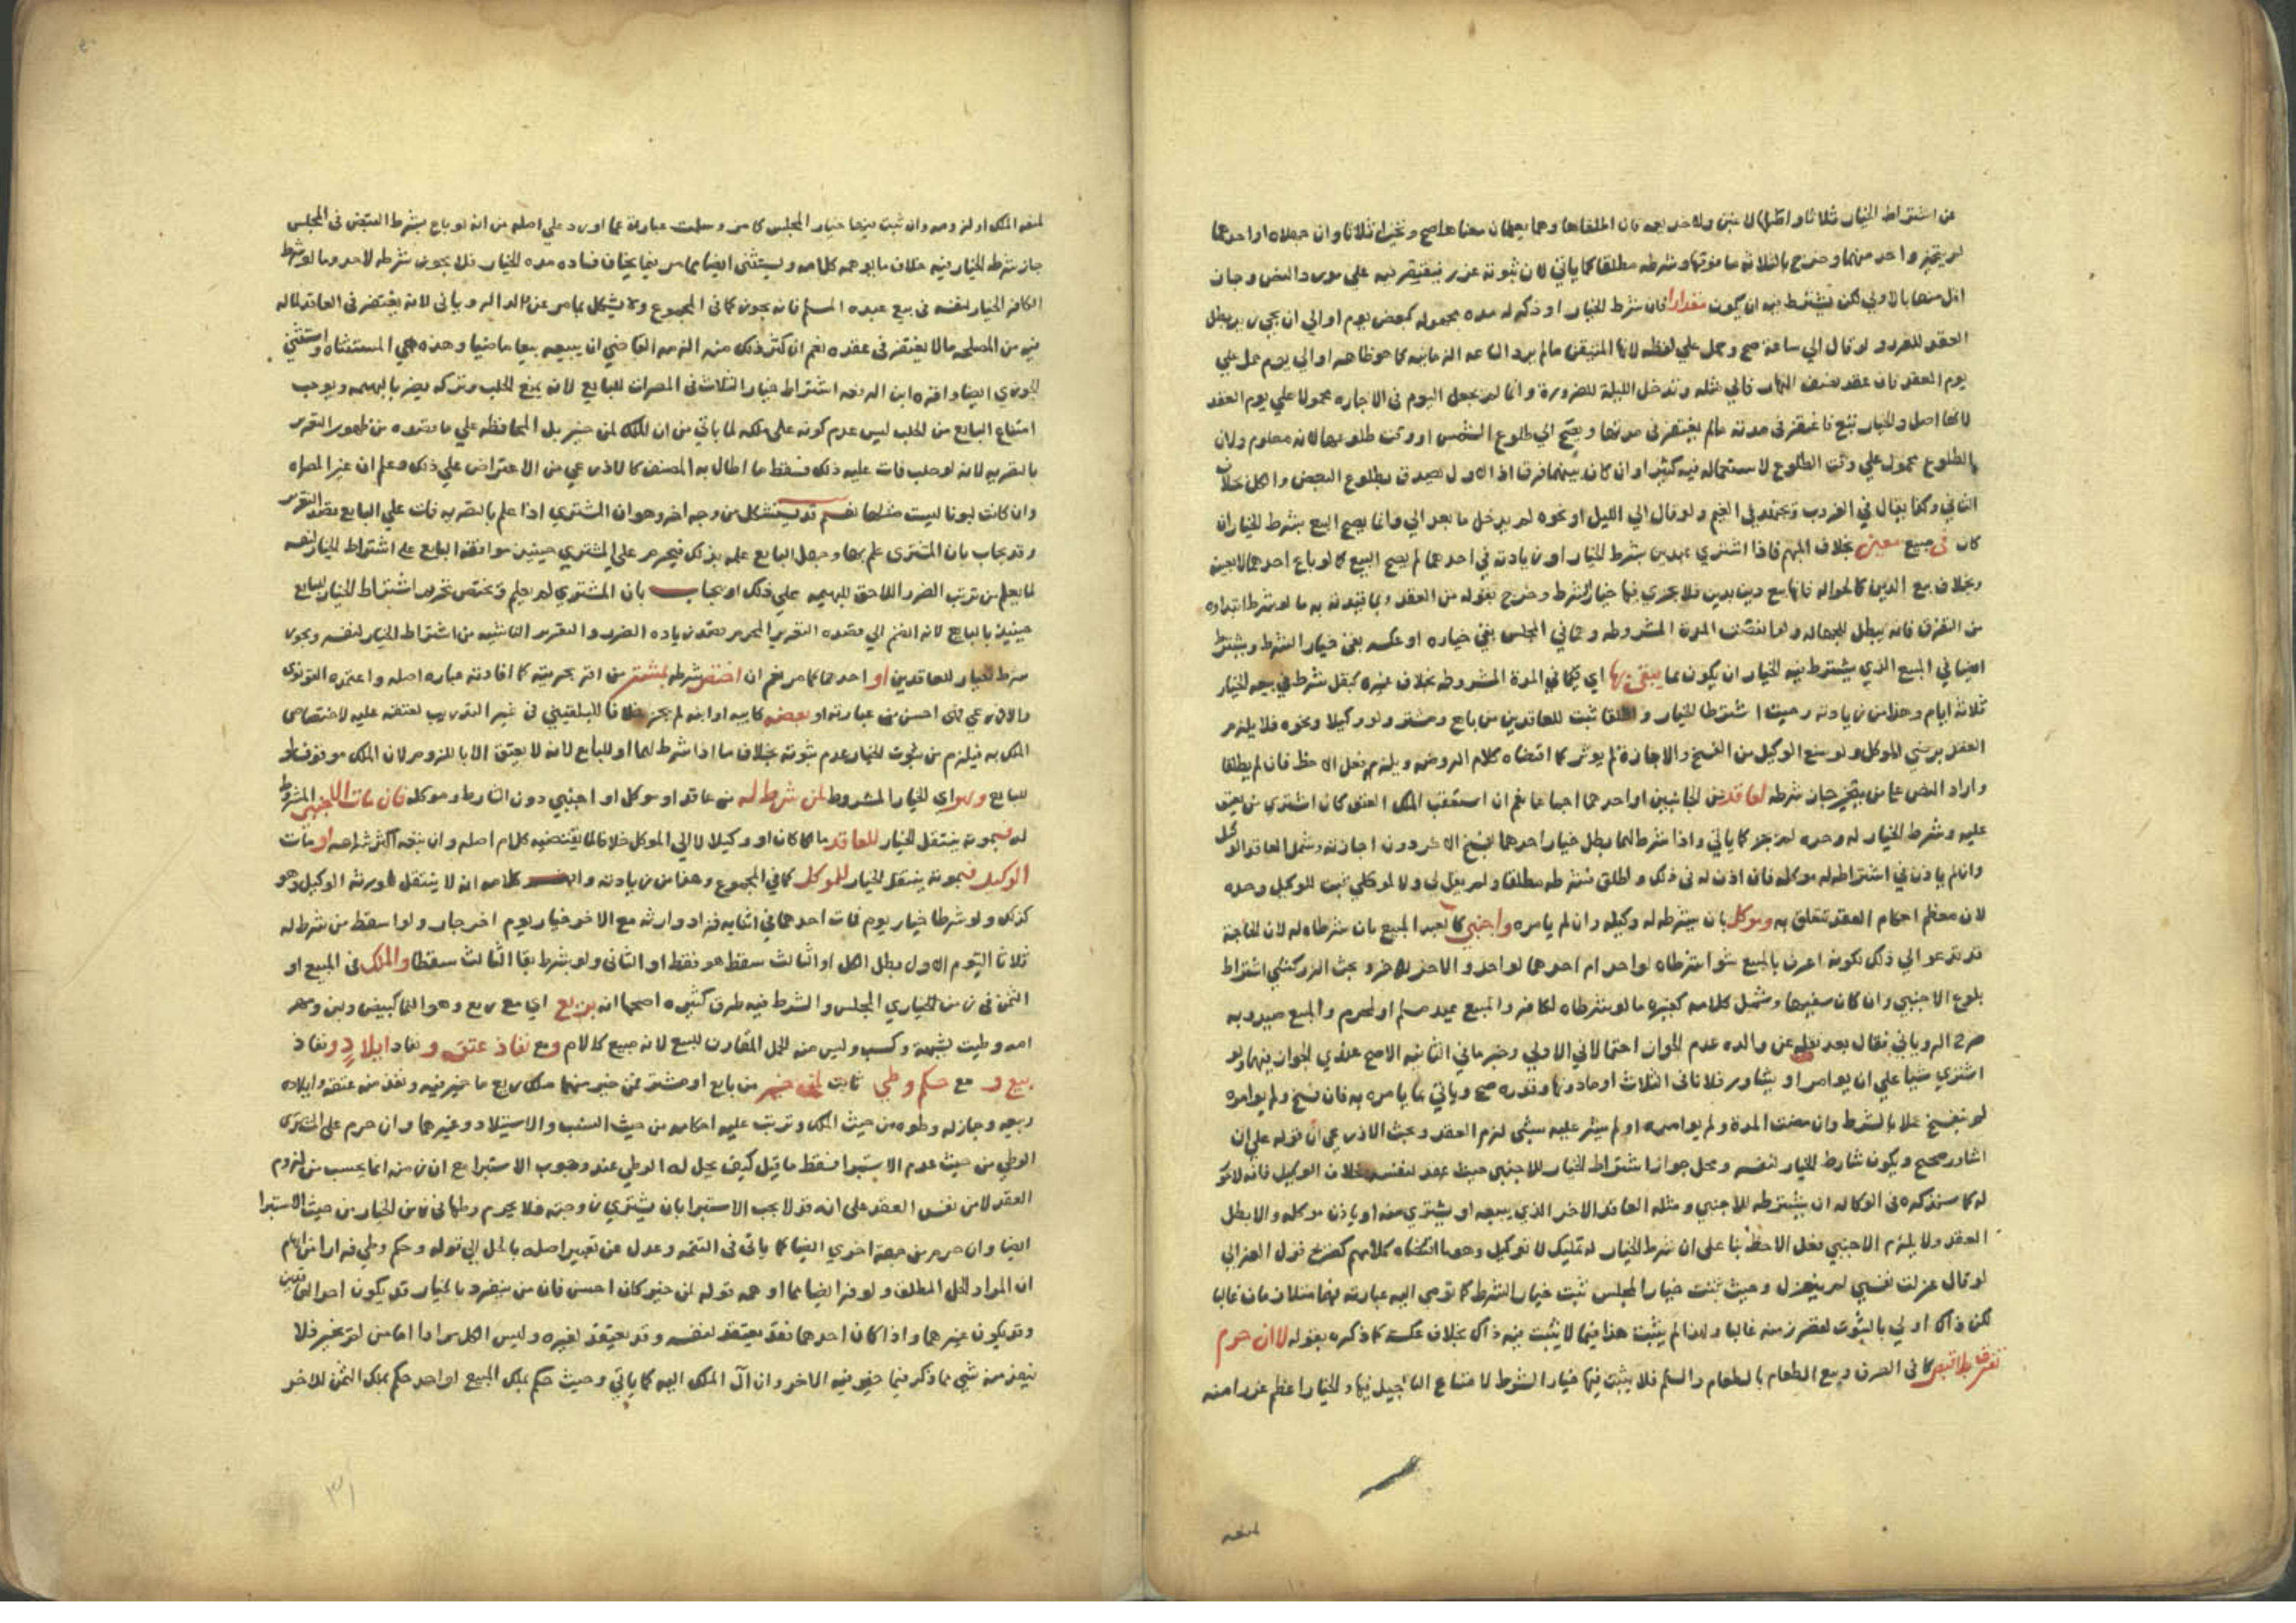 من اشتراط الخيار ثلاثا و لا غبن ولا خديعه فان اطلقاها وهما يعلمان معناها صح وتخيرا ثلاثا وان جهلاه او احدهما
لم يتخير واحد منهما وخرج بالثلاثة ما فوقها وشرطه مطلقا كما ياتي لان ثبوته غرر فيقتصر فيه على مورد النص وجاز
اقل منها بالاولى لكن يشترط فيه ان يكون مقدارا فان شرط الخيار او ذكر له مده مجهوله كبعض يوم او الي ان يجي زيد بطل
العقد للغرر ولو قال الي ساعة صح وحمل علي لحظه لانها المتيقن ما لم يرد الساعه الزمانيه كما هو ظاهر او الي يوم حمل علي
يوم العقد فان عقد نصف النهار فالي مثله وتدخل الليلة للضرورة وانما لم يجعل اليوم في الاجاره محمولا علي يوم العقد
لانها اصل والخيار تبع فاغتفر في مدته ما لم يغتفر في مدتها ويصح الي طلوع الشمس او وقت طلوعها لانه معلوم ولان
الطلوع محمول علي وقت الطلوع لاستعماله فيه كثيرا وان كان بينهما فرق اذ الاول يصدق بطلوع البعض والكل بخلاف
الثاني وكذا يقال في الغروب ويجتهد في الغيم ولو قال الي الليل او نحوه لم يدخل ما بعد الي وانما يصح البيع بشرط الخيار ان
كان في مبيع معين بخلاف المبهم فاذا اشتري عبدين بشرط الخيار او زيادته في احدهما لم يصح البيع كما لو باع احدهما لا بعينه
وبخلاف بيع الدين كالحواله فانها بيع دين بدين فلا يجري فيها خيار الشرط وخرج بقوله من العقد وبما قيدته به ما لو شرط ابتداوه
من التفرق فانه يبطل للجهاله ولو انقضت المدة المشروطه وهما في المجلس بقي خياره او عكسه بقي خيار الشرط ويشترط
ايضا في المبيع الذي يشترط فيه الخيار ان يكون مما يبقى فيها اي في المدة المشروطه بخلاف غيره كبقل شرط في بيعه الخيار
ثلاثة ايام وهذا من زيادته وحيث اشترطا الخيار واطلقا ثبت للعاقدين من بايع ومشتر ولو وكيلا ونحوه فلا يلزم
العقد برضي الموكل ولو منع الوكيل من الفسخ والاجازة لم يوثر كما اقتضاه كلام الروضه ويلزمه فعل الاحظ فان لم يطلقا
واراد النص علي من يتخير جاز شرطه لعاقد من الجانبين او احدهما اجماعا نعم ان استعقب الملك العتق كان اشتري من يعتق
عليه وشرط الخيار له وحده لم يجز كما ياتي واذا شرط لهما بطل خيار احدهما بفسخ الاخر دون اجازته وشمل العاقد الوكيل
وان لم ياذن في اشتراطه له موكله فان اذن له في ذلك واطلق شرطه مطلقا ولم يقل لي ولا لموكلي ثبت للوكيل وحده
لان معظم احكام العقد تتعلق به وموكل بان يشترطه له وكيله وان لم يامره واجنبي كالعبد المبيع بان شرطاه له لان الحاجة
قد تدعو الي ذلك لكونه اعرف بالمبيع سوا شرطاه لواحد ام احدهما لواحد والاخر لاخر وبحث الزركشي اشتراط
بلوغ الاجنبي وان كان سفيها وشمل كلامه كغيره ما لو شرطاه لكافر والمبيع عبد مسلم او لمحرم والمبيع صيد وبه
صرح الروياني فقال بعد نقله عن والده عدم الجواز احتمالا في الاولي وخرما في الثانيه الاصح عندي الجواز فيهما ولو
اشتري شيا علي ان يوامر او يشاور فلانا في الثلاث او ما دونها وقدره صح وياتي بما يامره به فان فسخ ولم يوامره
لم ينفسخ عملا بالشرط وان مضت المدة ولم يوامره او لم يشر عليه بشي لزم العقد وبحث الاذرعي ان قوله علي ان
اشاور صحيح ويكون شارط الخيار لنفسه ومحل جواز اشتراط الخيار للاجنبي حيث عقد لنفسه بخلاف الوكيل فانه لا يجوز
له كما سنذكره في الوكاله ان يشترطه للاجنبي ومثله العاقد الاخر الذي يبيعه او يشتري منه او ياذن موكله والا بطل
العقد ولا يلزم الاجنبي فعل الاحظ بنا على ان شرط الخيار له تمليك لا توكيل وهو ما اقتضاه كلامهم كصريح قول الغزالي
لو قال عزلت نفسي لم ينعزل وحيث ثبت خيار المجلس ثبت خيار الشرط كما تومي اليه عبارته فهما متلازمان غالبا
لكن ذاك اولي بالثبوت لقصر زمنه غالبا ولهذا لم يثبت هذا فيما لا يثبت فيه ذاك بخلاف عكسه كما ذكره بقوله لا ان حرم
تفرق بلا قبض كما في الصرف وبيع الطعام بالطعام والسلم فلا يثبت فيها خيار الشرط لامتناع التاجيل فيها والخيار اعظم غررا منه
لمنعه
لمنعه الملك او لزومه وان ثبت فيها خيار المجلس كما مر وسلمت عبارته مما اورد علي اصله من انه لو باع بشرط القبض في المجلس
جاز شرط الخيار فيه خلاف ما يوهمه كلامه ويستثنى ايضا مما مر فيما يخاف فساده مده الخيار فلا يجوز شرطه لاحد وما لو شرط
الكافر الخيار لنفسه في بيع عبده المسلم فانه يجوز كما في المجموع ولا يشكل بما مر عن والد الروياني لانه يغتفر في العاقد لما له
فيه من المصلحه ما لا يغتفر في عقده نعم ان كثر ذلك منه الزمه القاضي ان يبيعه بيعا ماضيا وهذه هي المستثناه واستثني
الجوري ايضا واقره ابن الرفعه اشتراط خيار الثلاث في المصراة للبايع لانه يمنع الحلب وتركه يضر بالبهيمه ويوجب
امتناع البايع من الحلب ليس عدم كونه على ملكه لما ياتي من ان الملك لمن خير بل المحافظه علي ما قصده من ظهور التغرير
بالتصريه لانه لو حلب فات عليه ذلك فسقط ما اطال به المصنف كالاذرعي من الاعتراض علي ذلك وعلم ان غير المصراه
وان كانت لبونا ليست مثلها نعم قد يستشكل من وجه اخر وهو ان المشتري اذا علم بالتصريه فات علي البايع قصد التغرير
وقد يجاب بان المشتري علم بها وجهل البايع علمه بذلك فيحرم علي المشتري حينيذ موافقة البايع على اشتراط الخيار لنفسه
لما يعلم من ترتب الضرر اللاحق للبهيمه علي ذلك او يجاب بان المشتري لم يعلم ويختص تحريم اشتراط الخيار للبايع
حينيذ بالبايع لانه انضم الي قصده التغرير المحرم قصد زياده الضرر والتغرير الناشيه من اشتراط الخيار لنفسه ويجوز
شرط الخيار للعاقدين او احدهما كما مر نعم ان اختص شرطه بمشتر من اقر بحريته كما افادته عباره اصله واعتمده القونوي
والاذرعي فهي احسن من عبارته او بعضه كابيه او ابنه لم يجز خلافا للبلقيني في غير التدريب لعتقه عليه لاختصاص
الملك به فيلزم من ثبوت الخيار عدم ثبوته بخلاف ما اذا شرط لهما او للبايع لانه لا يعتق الا باللزوم لان الملك موقوف او
للبايع وهو اي الخيار المشروط لمن شرط له من عاقد او موكل او اجنبي دون الشارط وموكله فان مات الاجنبي المشروط
له فبموته ينتقل الخيار للعاقد مالكا كان او وكيلا لا الي الموكل خلافا لما يقتضيه كلام اصله وان تبعه اكثر شراحه او مات
الوكيل فبموته ينتقل الخيار للموكل كما في المجموع وهذا من زيادته وافهم كلامه انه لا ينتقل لورثة الوكيل وهو
كذلك ولو شرطا خيار يوم فمات احدهما في اثنايه فزاد وارثه مع الاخر خيار يوم اخر جاز ولو اسقط من شرط له
ثلاثا اليوم الاول بطل الكل او الثالث سقط هو فقط او الثاني ولو بشرط بقا الثالث سقطا والملك في المبيع او
الثمن في زمن الخياري المجلس والشرط فيه طرق كثيره اصحها انه مع ريع اي مع ريع وهو النما كبيض ولبن ومهر
امه وطيت بشبهة وكسب وليس منه الحمل المقارن للبيع لانه مبيع كالام ومع نفاذ عتق ونفاذ ايلاد ونفاذ
بيع و مع حكم وطي ثابت لمن خير من بايع او مشتر فمن خير منهما ملك ريع ما خير فيه ونفذ منه عتقه وايلاده
وبيعه وجاز له وطوه من حيث الملك وترتب عليه احكامه من حيث النسب والاستيلاد وغيرها وان حرم على المشتري
الوطي من حيث عدم الاستبرا فسقط ما قيل كيف يحل له الوطي عند وجوب الاستبرا مع ان زمنه انما يحسب من لزوم
العقد لا من نفس العقد على انه قد لا يجب الاستبرا بان يشتري زوجته فلا يحرم وطيها في زمن الخيار من حيث الاستبرا
ايضا وان حرم من جهة اخري ايضا كما ياتي في التتمه وعدل عن تعبير اصله بالحل الي قوله وحكم وطي فرارا من ايهام
ان المراد الحل المطلق ولو فر ايضا مما اوهمه قوله لمن خير كان احسن فان من ينفرد بالخيار قد يكون احد العاقدين
وقد يكون غيرهما واذا كان احدهما فقد يعتقد لنفسه وقد يعتقد لغيره وليس الكل مرادا اما من لم يخير فلا
ينفذ منه شي مما ذكر فيما خير فيه الاخر وان آل الملك اليه كما ياتي وحيث حكم بملك المبيع لواحد حكم بملك الثمن للاخر
٣١